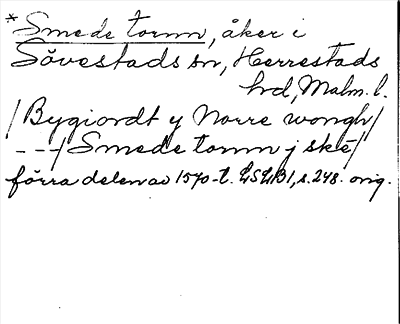 * Smede tornn, åker i
Sövestads sn, Herrestads
hd, Malm. l.
/Bygiordt y Norre wongh/
---/Smede tornn j ske/
förra delen av 1570-t. LSLB1, s. 248. orig.